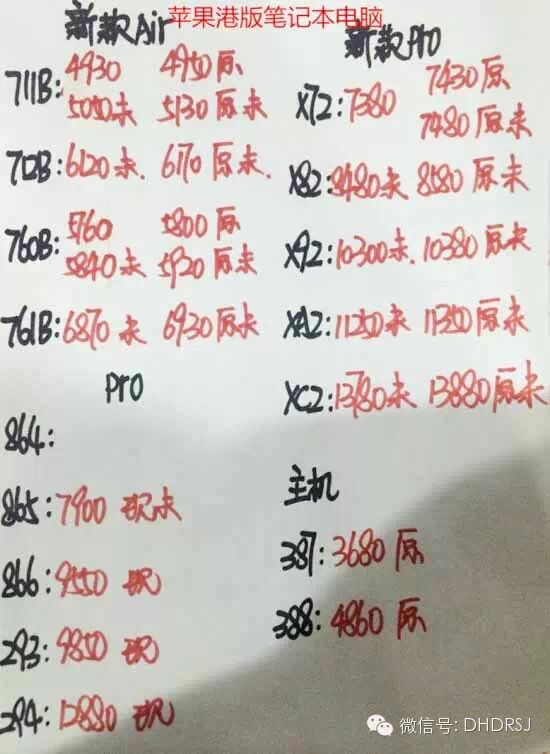 苹果港版笔记本电脑
新款Air
711B: 4930 4950原
5050未 5130原未
712B: 6120未. 6170原未.
760B: 5760 5800原
5840未 5920原未
761B: 6870未 6930原未
Pro
864:
865: 7900 现未
866: 9550 现
293: 9850 现
294: 12880 现
新款Pro
X72: 7380 7430原
7480原未
X82: 8480未 8580原未
X92: 10300未. 10380原未
XA2: 11250未 11350原未
XC2: 13780未 13880原未
主机
387: 3680原
388: 4860原
微信号: DHDRSJ